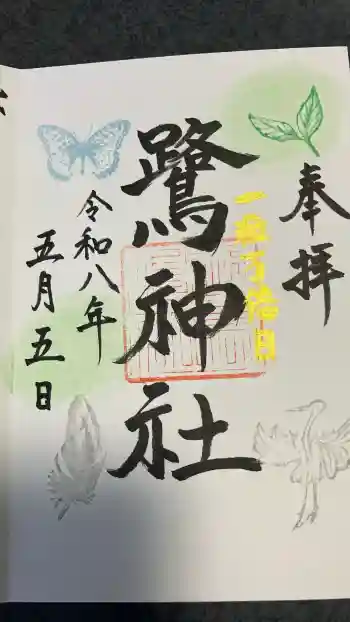 奉拝
一粒万倍日
鷺神社
令和八年
五月五日